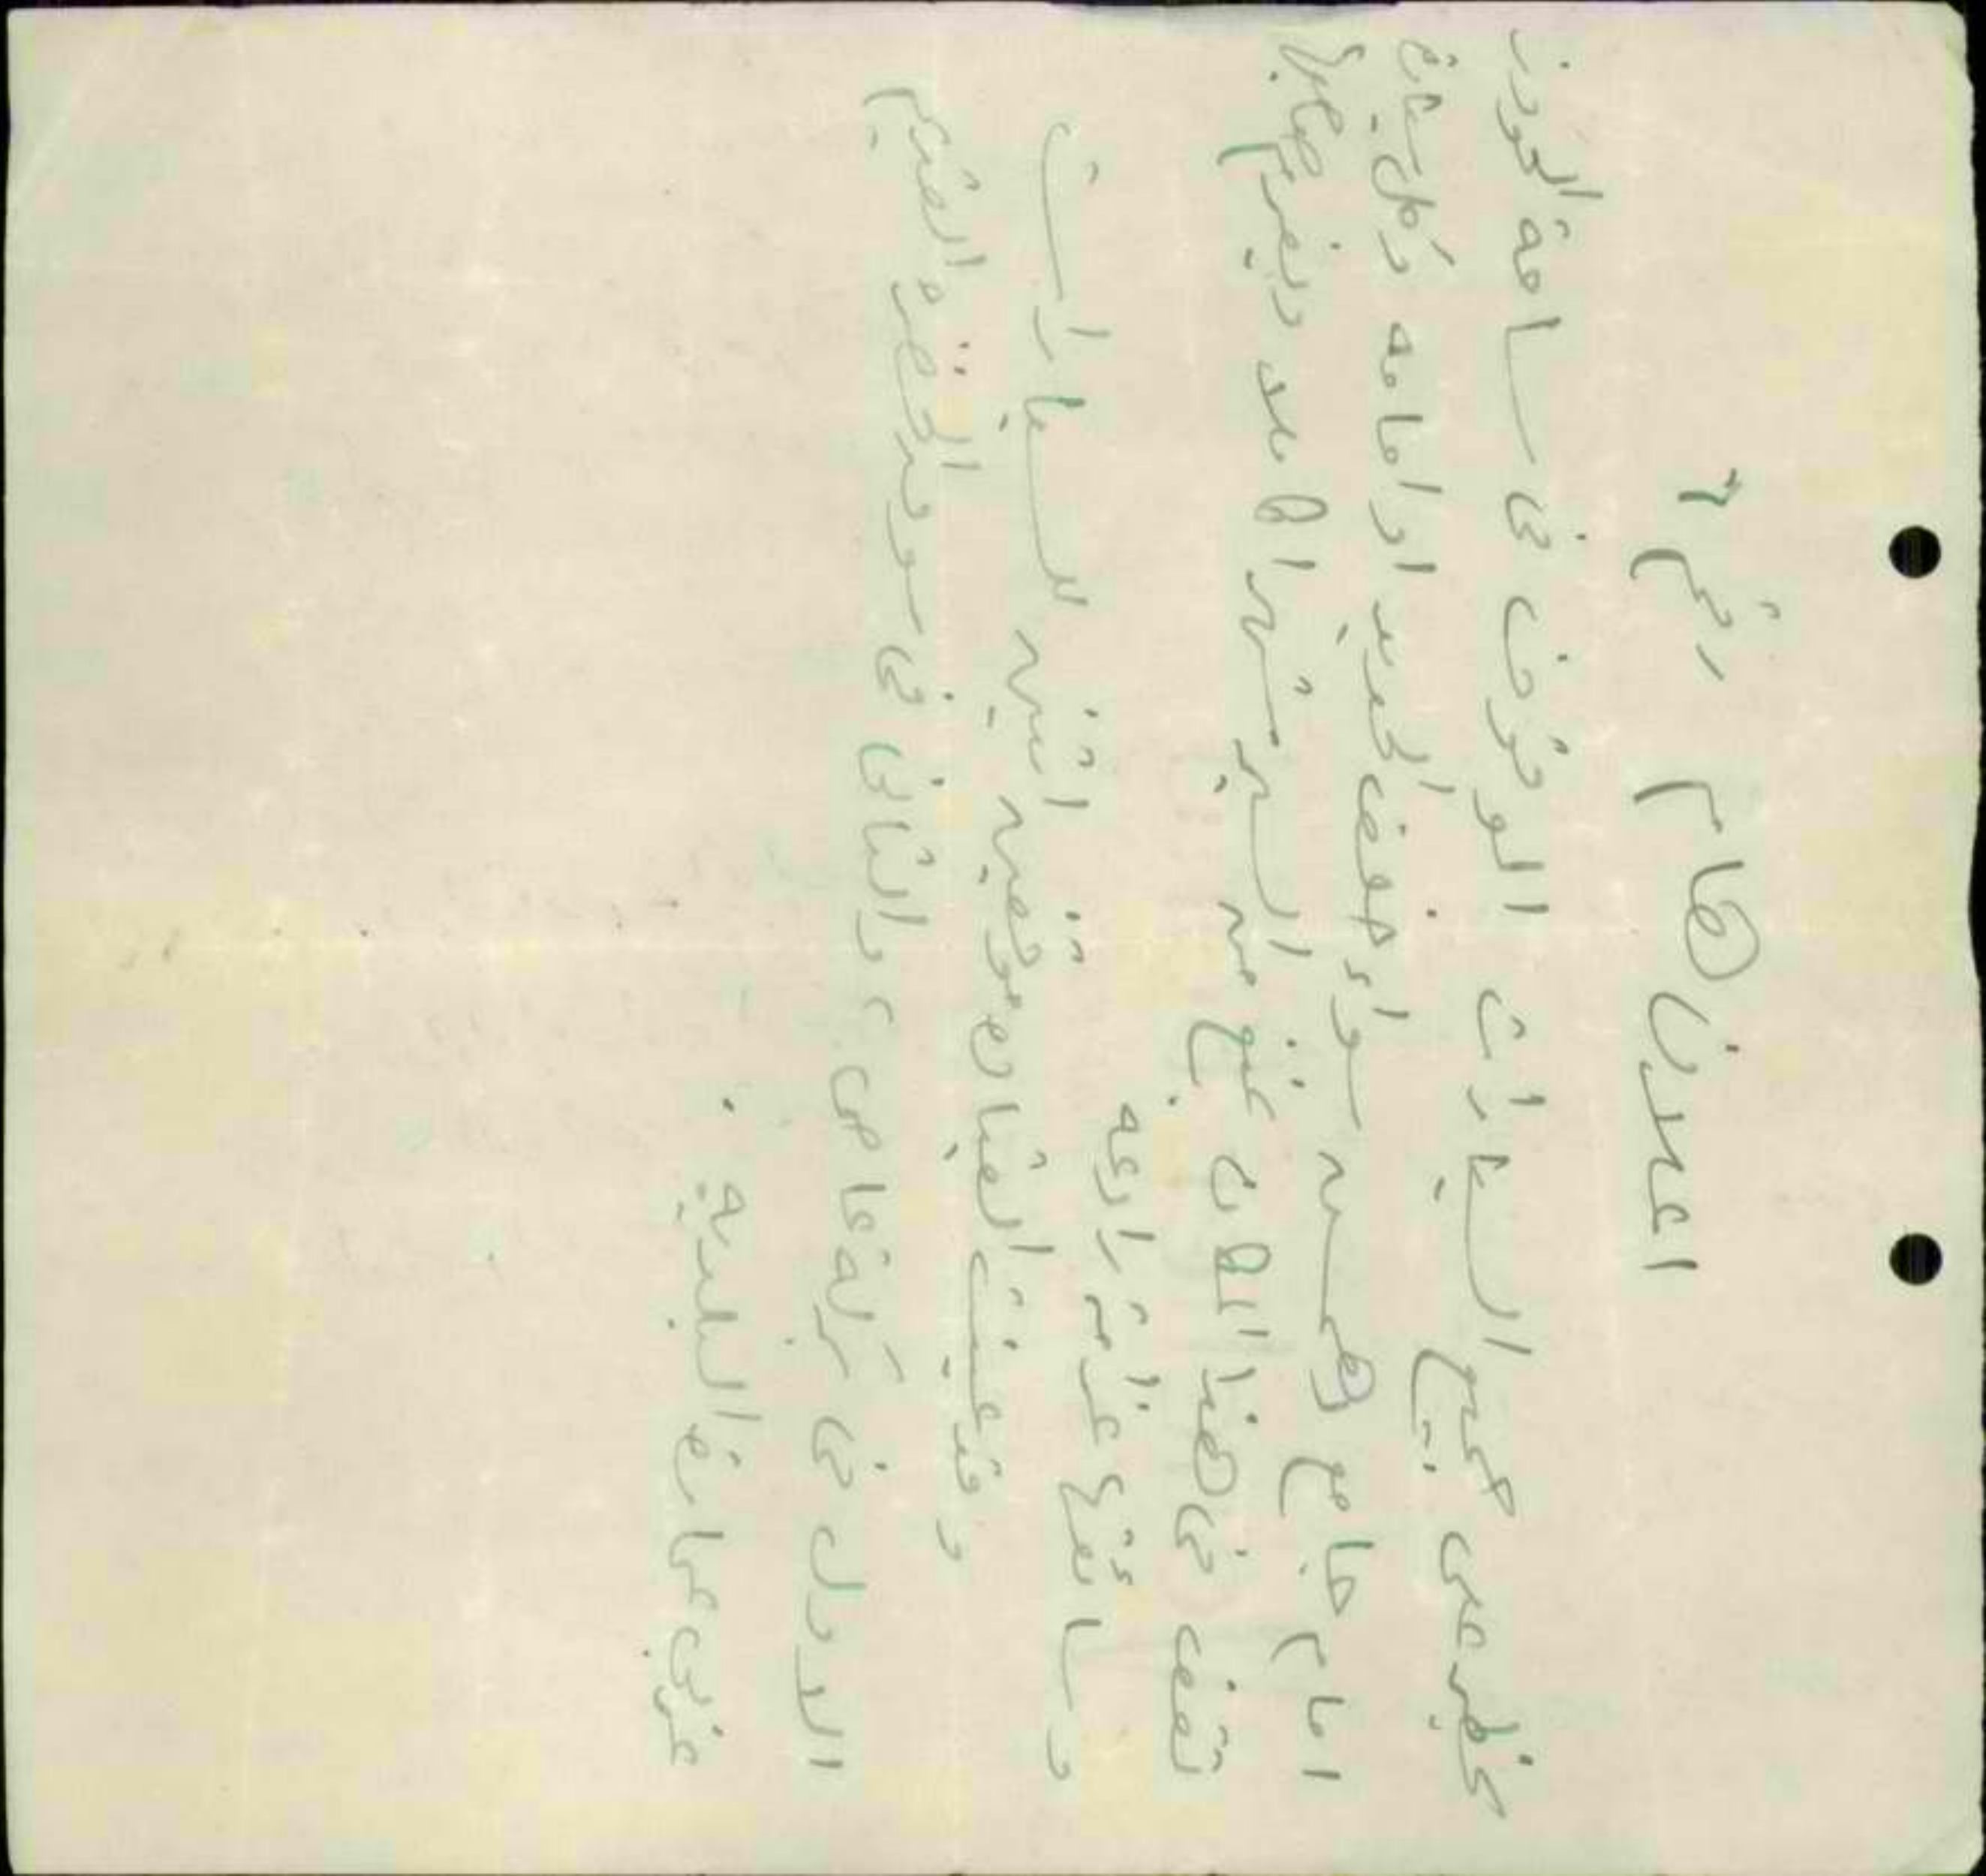 اعلان هام رقم ٦
يحظر على جميع السيارات الوقوف في ساحة الحوز
امام جامع محسن سواء خلف الحديد او امامه وكل سيارة
تقف في هذا المكان يمنع من السير شهرا كاملا ويغرم صاحبها
وسائقها غرامة رادعه
وقد عينت القيادة موقفين اثنين للسيارات
الاول في بركة عاصي، والثاني في سوق الخضرة القديم
غربي عمارة البلدية .